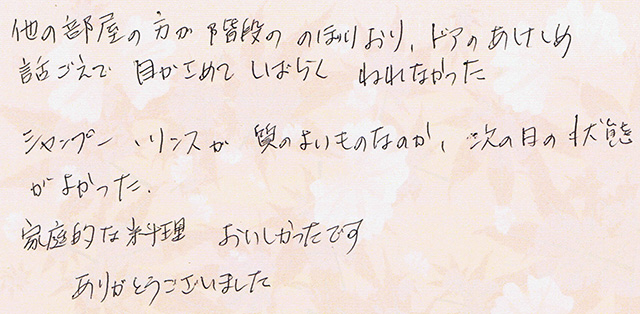 他の部屋の方が階段の のぼりおり、ドアのあけしめ
話ごえで 目がさめて しばらく ねれなかった
シャンプー、リンスが 質のよいものなのか、次の日の状態
がよかった.
家庭的な料理 おいしかったです
ありがとうございました